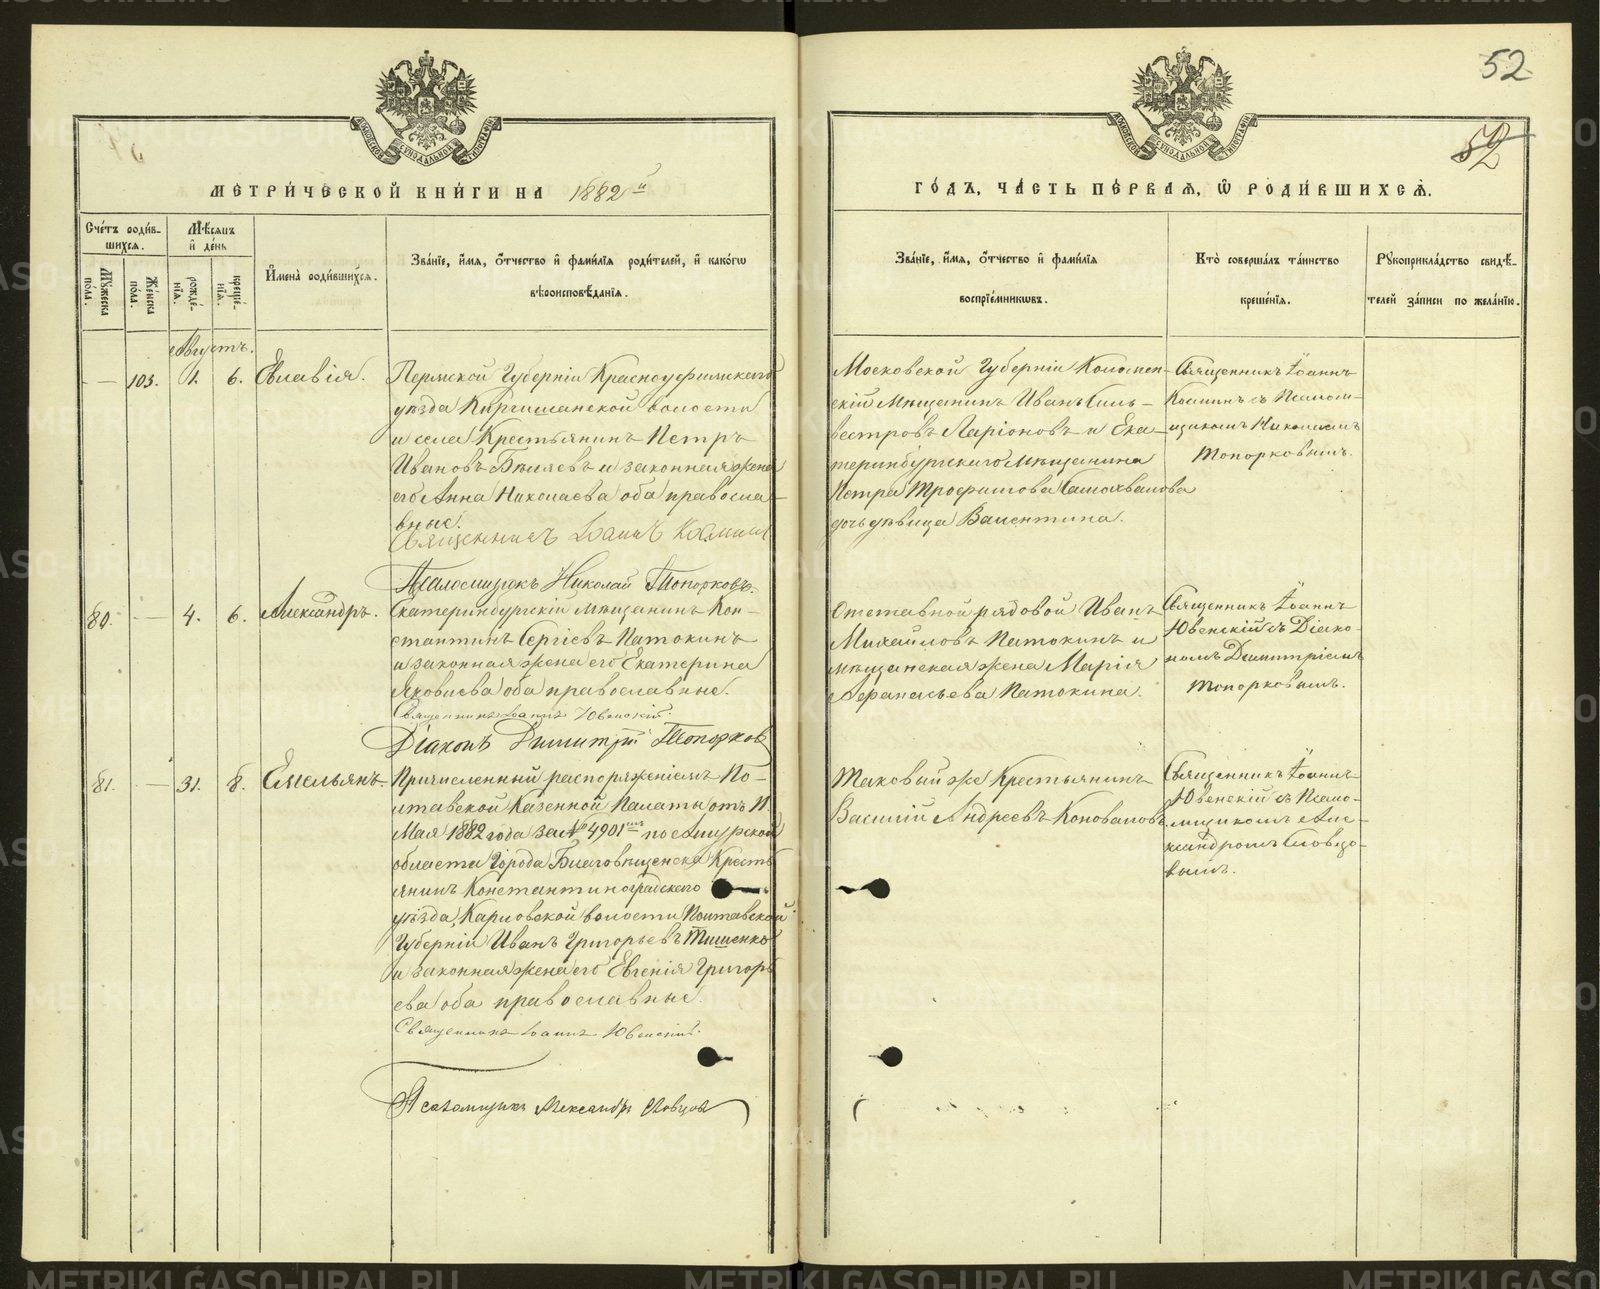 52
52
МОСКОВСКОЙ СѴНОДАЛЬНОЙ ТИПОГРАФІИ
МОСКОВСКОЙ СѴНОДАЛЬНОЙ ТИПОГРАФІИ
МЕТРИ́ЧЕСКОЙ КНИ́ГИ НА 1882й
Сче́тъ роди́в-
шихся.
Мѣ́сяцъ
и҆ де́нь
Му́жеска
по́ла.
Же́нска
по́ла.
рожде́-
нїя.
креще́-
нїя.
И҆мена̀ роди́вшихся.
Зва́нїе, и҆́мя, ѻ҆́тчество и҆ фами́лїя роди́телей, и҆ како́гѡ
вѣроисповѣ́данїя.
Августъ.
— 103. 1. 6. Евлавія.
Пермской Губерніи Красноуфимскаго
уѣзда Киргишанской волости
и села Крестьянинъ Петръ
Ивановъ Бѣляевъ и законная жена
его Анна Николаева оба православ-
вные.
Священникъ Іоаннъ Кашинъ
Псаломщикъ Николай Топорковъ.
80. — 4. 6. Александръ.
Екатеринбургскій мѣщанинъ Кон-
стантинъ Сергіевъ Патокинъ
и законная жена его Екатерина
Яковлева оба православные.
Священникъ Іоаннъ Ювенскій.
Діаконъ Димитрій Топорков
81. — 31. 8. Емельянъ.
Причисленный распоряженіемъ По-
лтавской Казенной Палаты отъ 11
Мая 1882 года за № 4901мъ по Амурской
области Города Благовѣщенска Кресть
янинъ Константиноградскаго
уѣзда, Карловской волости Полтавской
Губерніи Иванъ Григорьевъ Тишенко
и законная жена его Евгенія Григорь
ева оба православные.
Священникъ Іоаннъ Ювенскій.
Псаломщикъ Александръ Словцов
ГО́ДЪ, ЧА́СТЬ ПЕ́РВАЯ, Ѡ҆ РОДИ́ВШИХСЯ.
Зва́нїе, и҆́мя, ѻ҆́тчество и҆ фами́лїя
воспрїе́мникѡвъ.
Кто̀ соверша́лъ та́инство
креще́нїя.
Рꙋкоприкла́дство свидѣ́-
телей за́писи по жела́нїю.
Московской Губерніи Коломен-
скій Мѣщанинъ Иванъ Силь-
вестровъ Ларіоновъ и Ека-
теринбургскаго Мѣщанина
Петра Трофимова Самохвалова
дочь дѣвица Валентина.
Священникъ Іоаннъ
Кашинъ съ Псалом-
щикомъ Николаемъ
Топорковымъ.
Отставной рядовой Иванъ
Михайловъ Патокинъ и
мѣщанская жена Марія
Афанасьева Патокина.
Священникъ Іоаннъ
Ювенскій съ Діако-
номъ Димитріемъ
Топорковымъ.
Таковый же Крестьянинъ
Василій Андреевъ Коноваловъ
Священникъ Іоаннъ
Ювенскій съ Псало-
мщикомъ Алек-
сандромъ Словцо-
вымъ.
METRIKI.GASO-URAL.RU